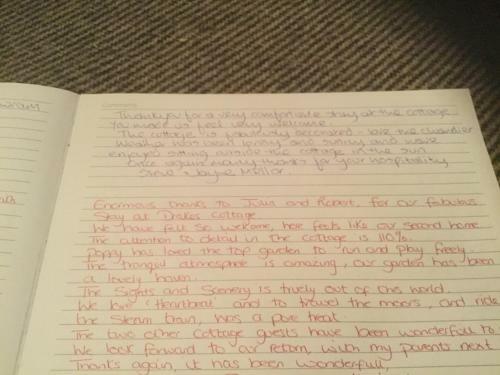 Comments
Thank you for a very comfortable stay at the cottage
You made us feel very welcome.
The cottage is decorated - love the chandelier
Weather has been lovely and sunny and we've
enjoyed sitting outside the cottage in the sun
Once again many thanks for your hospitality
Steve & Jayne
Enormous thanks to Juan and Robert, for our fabulous
Stay at Drakes Cottage.
We have felt so welcome, here feels like our second home
The attention to detail in the cottage is 110%
Poppy has loved the top garden to run and play freely.
The tranquil atmosphere is amazing, our garden has been
a lovely haven.
The Sights and Scenery is truely out of this world.
We love 'Heartbeat' and to travel the moors, and ride
the Steam train, was a pure treat.
The two other cottage guests have been wonderfull to.
We look forward to our return, with my parents next
Thanks again, it has been wonderfull,